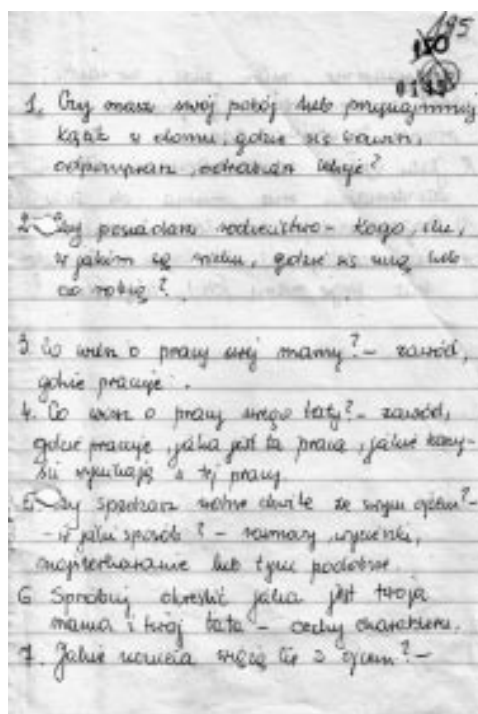 195
150
0143
1. Czy masz swój pokój lub przynajmniej
kąt w domu, gdzie się bawisz,
odpoczywasz, odrabiasz lekcje?
2. Czy posiadasz rodzeństwo - kogo, ile,
w jakim są wieku, gdzie się uczą lub
co robią?
3 Co wiesz o pracy swej mamy? - zawód,
gdzie pracuje.
4. Co wiesz o pracy swego taty? - zawód,
gdzie pracuje, jaka jest ta praca, jakie korzy-
ści wynikają z tej pracy.
5 Czy spędzasz wolne chwile ze swym ojcem? -
- w jaki sposób? - rozmowy, wycieczki,
majsterkowanie lub tym podobne.
6 Spróbuj określić jaka jest twoja
mama i twój tata - cechy charakteru.
7. Jakie uczucia wiążą Cię z ojcem? -